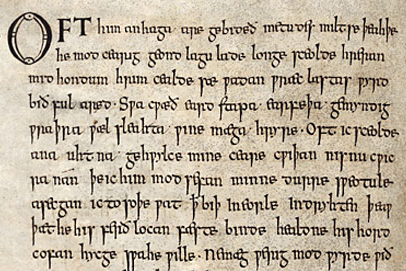 OFT him anhaga are gebideð metudes miltse þeahþe
he mod cearig geond lagu lade longe sceolde hreran
mid hondum hrim cealde sæ ƿadan ƿræc lastas ƿyrd
bið ful aræd · Sƿa cƿæð eard stapa · earfeþa · gemyndig
ƿraþra ƿæl sleahta · ƿine mæga · hryre · Oft ic sceolde
ana uhtna · gehƿylce mine ceare cƿiþan nis nu cƿic
ra nan þe ic him mod sefan minne durre sƿeotule
asecgan ic to soþe ƿat ꝥ biþ in eorle indryhten þeaƿ
þæt he his ferð locan fæste binde healdne his hord
cofan hycge sƿa he ƿille · Ne mæg ƿerig mod ƿyrde ƿið